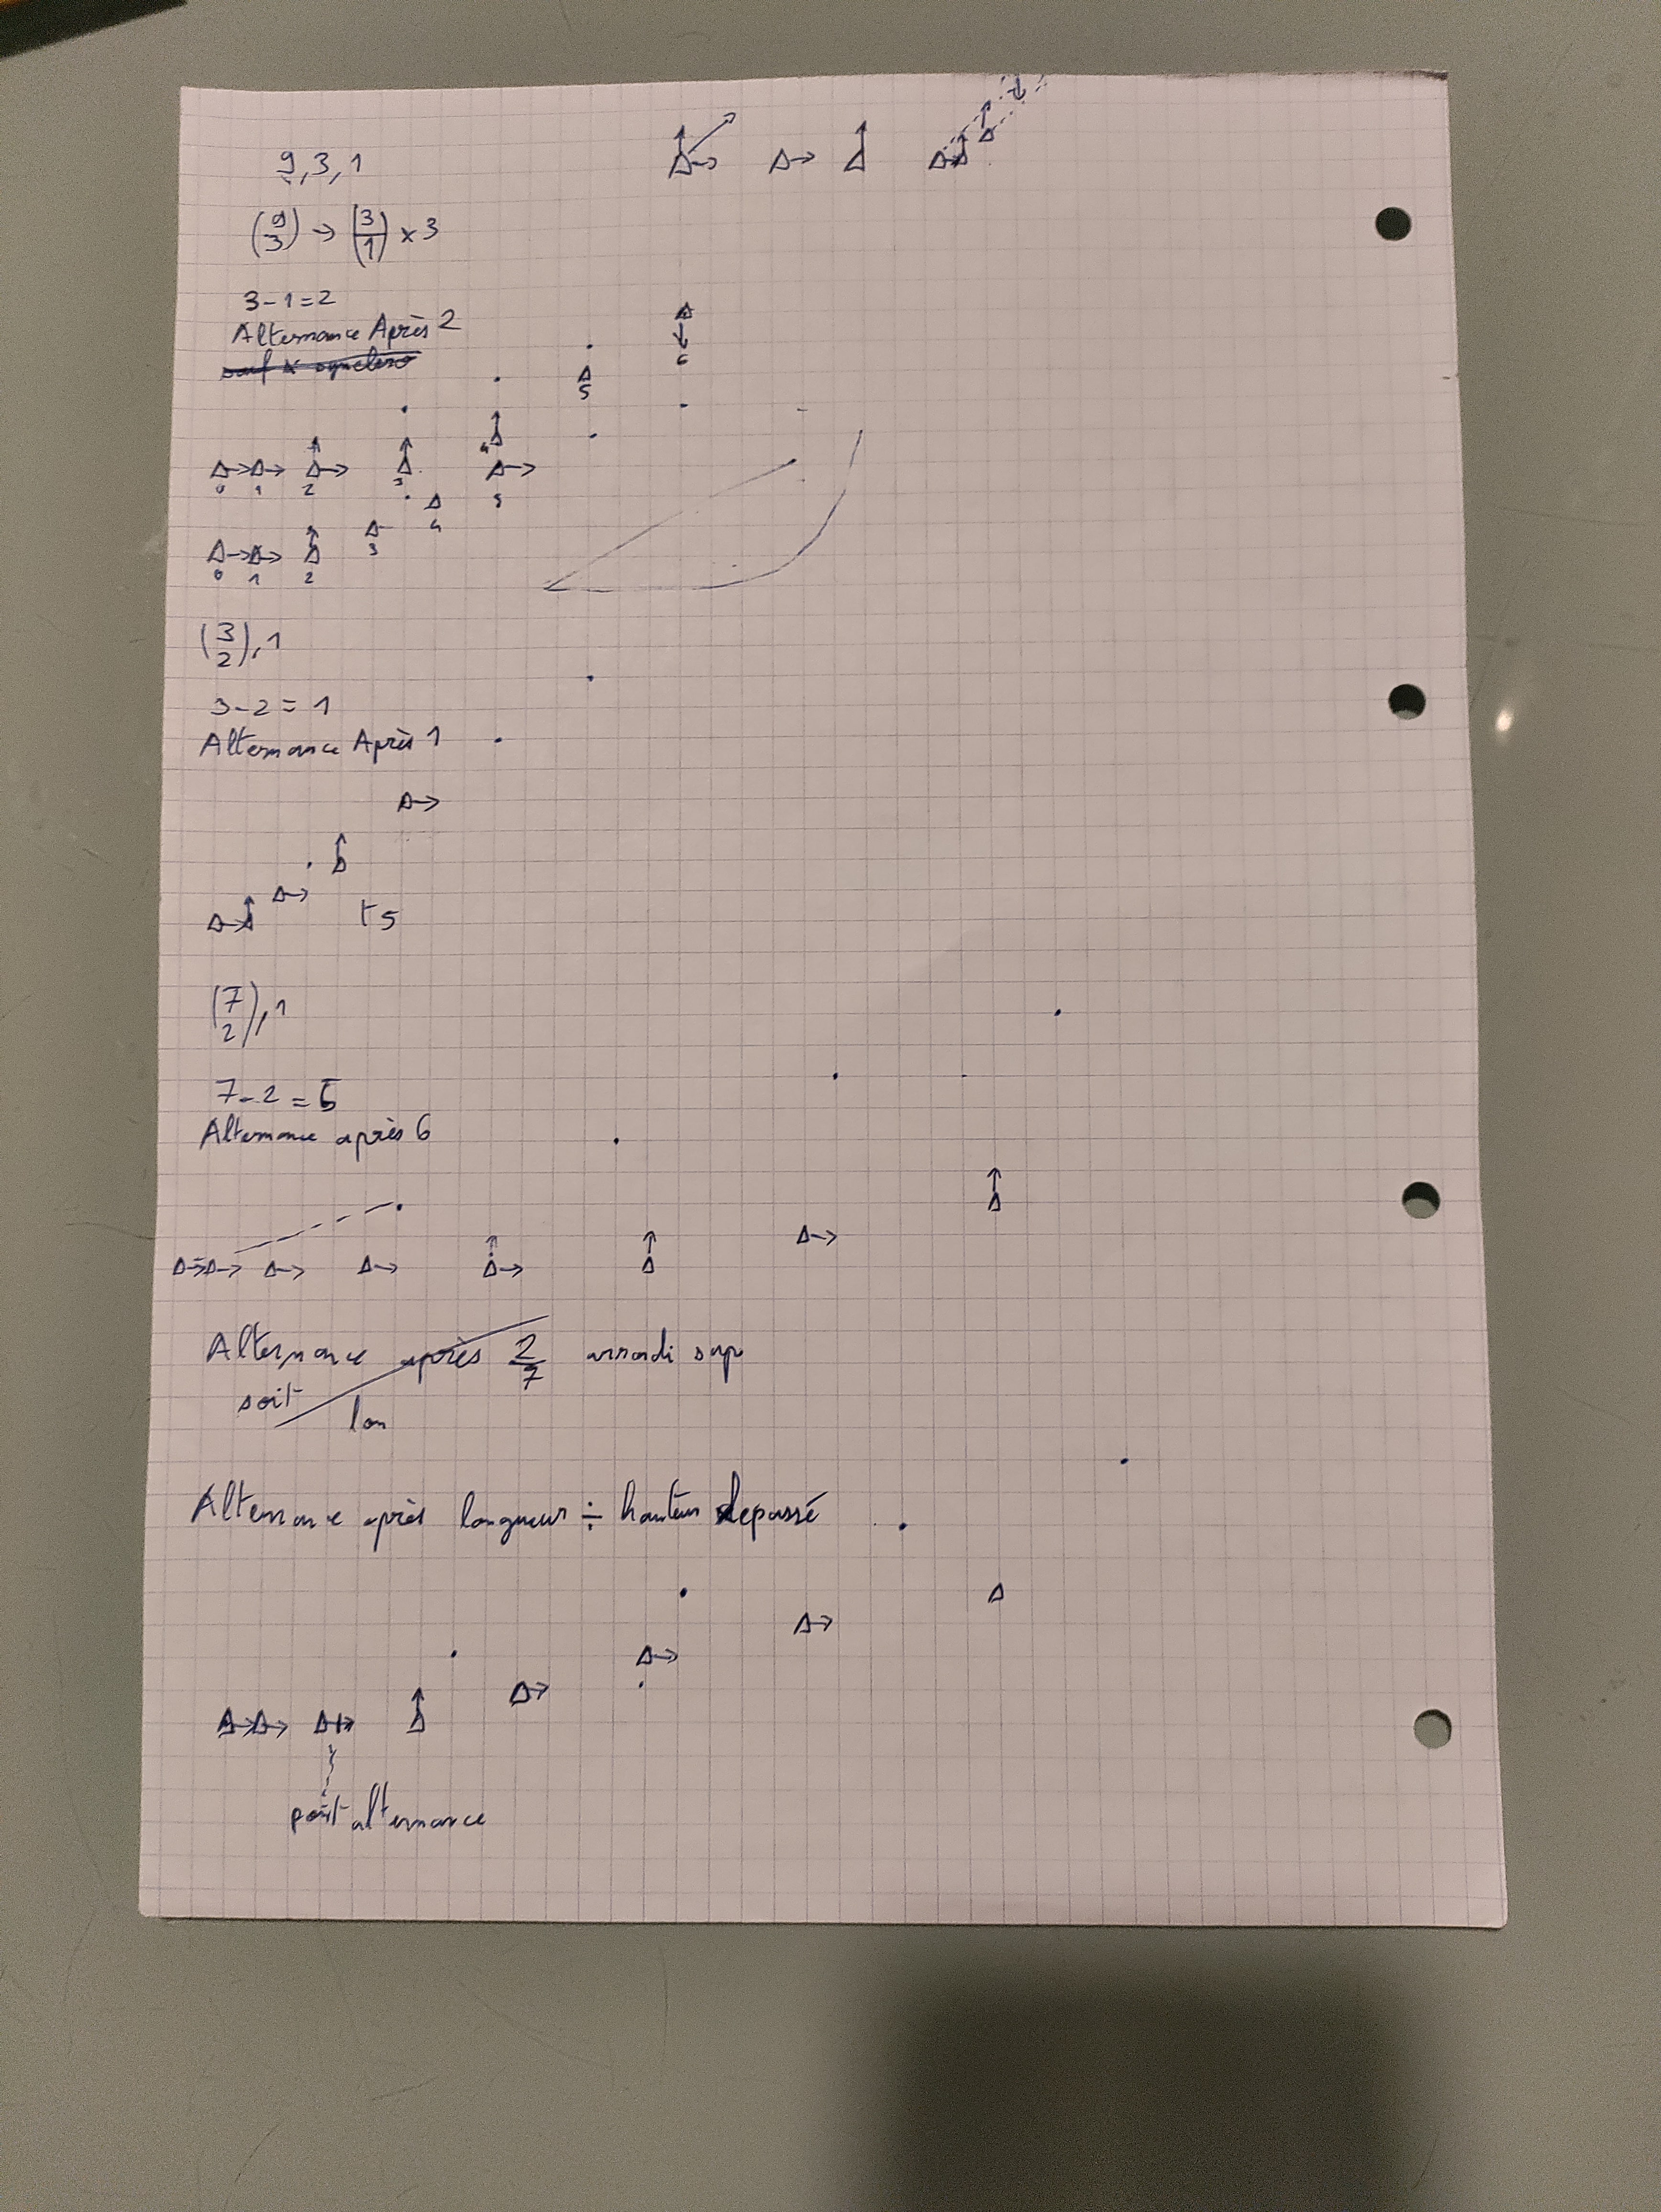 9,3,1
(9/3) → (3/1) × 3
3-1=2
Alternance Après 2
6
5
4
0 1 2 3 5
4
3
0 1 2
(3/2),1
3-2=1
Alternance Après 1
t5
(7/2),1
7-2=5
Alternance après 6
Alternance après 2/7 arrondi sup
soit
Alternance après longueur ÷ hauteur depassé
point alternance